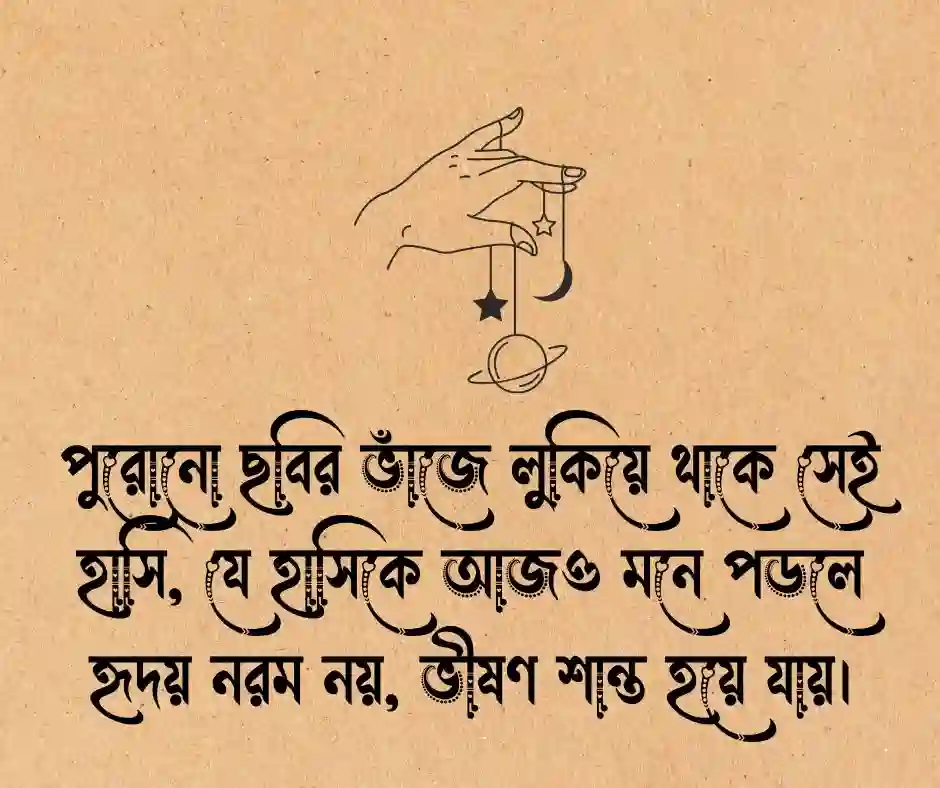 পুরোনো ছবির ভাঁজে লুকিয়ে থাকে সেই
হাসি, যে হাসিকে আজও মনে পডলে
হৃদয় নরম নয়, ভীষণ শান্ত হয়ে যায়।